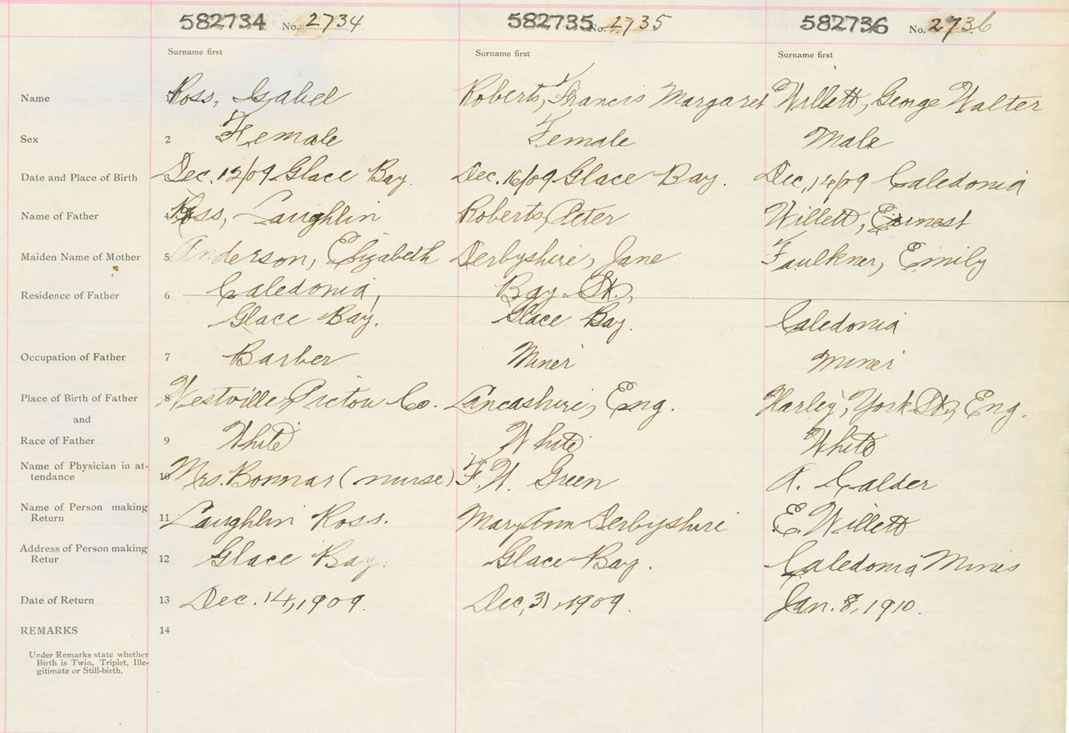 582734 No. 2734 582735 No. 2735 582736 No. 2736
Surname first Surname first Surname first
Name Ross, Isabel Roberts, Francis Margaret Willett, George Walter
Sex 2 Female Female Male
Date and Place of Birth Dec. 12/09 Glace Bay. Dec. 16/09 Glace Bay. Dec. 14/09 Caledonia
Name of Father 4 Ross, Laughlin Roberts, Peter Willett, Ernest
Maiden Name of Mother 5 Anderson, Elizabeth Derbyshire, Jane Faulkner, Emily
Residence of Father 6 Caledonia, Bay St.,
Glace Bay. Glace Bay. Caledonia
Occupation of Father 7 Barber Miner Miner
Place of Birth of Father 8 Westville Pictou Co. Lancashire, Eng. Harley, York St., Eng.
and
Race of Father 9 White White White
Name of Physician in at-
tendance 10 Mrs. Bonnar (nurse) F. W. Green A. Calder
Name of Person making
Return 11 Laughlin Ross. Mary Ann Derbyshire E Willett
Address of Person making
Retur 12 Glace Bay. Glace Bay. Caledonia Mines
Date of Return 13 Dec. 14, 1909. Dec, 31, 1909. Jan. 8, 1910.
REMARKS 14
Under Remarks state whether
Birth is Twin, Triplet, Ille-
gitimate or Still-birth.